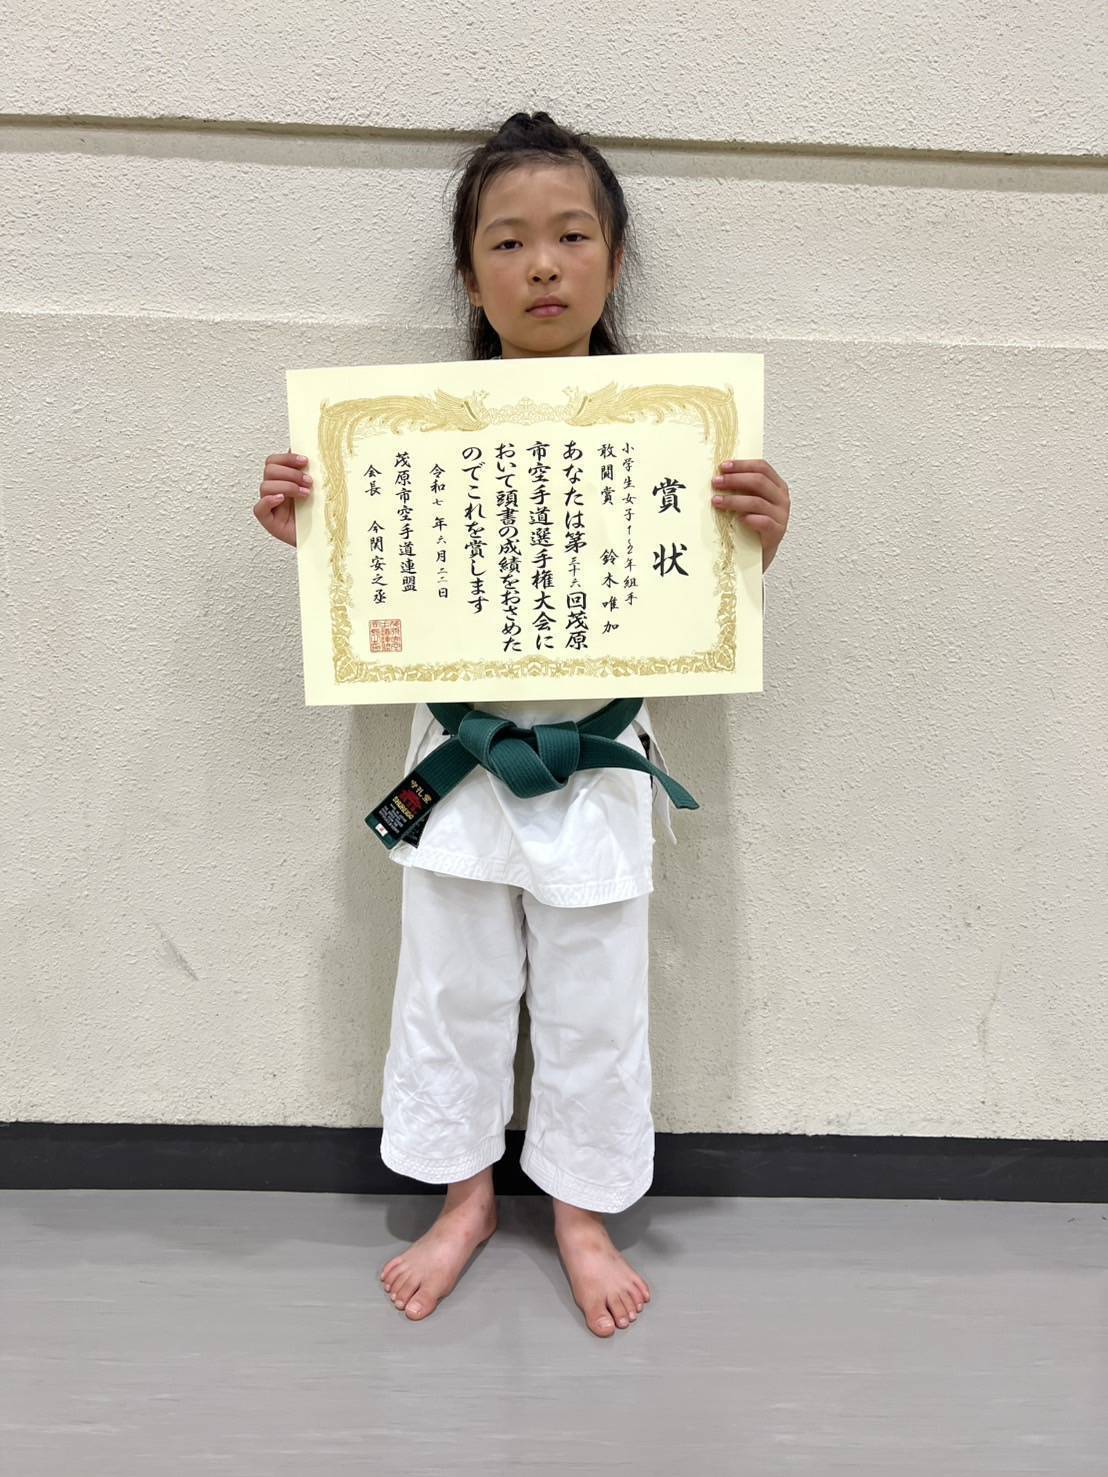 賞状
小学生女子1~2年組手
敢闘賞 鈴木唯加
あなたは第三十六回茂原
市空手道選手権大会に
おいて頭書の成績をおさめた
のでこれを賞します
令和七年六月二二日
茂原市空手道連盟
会長 今関安之丞
守礼堂